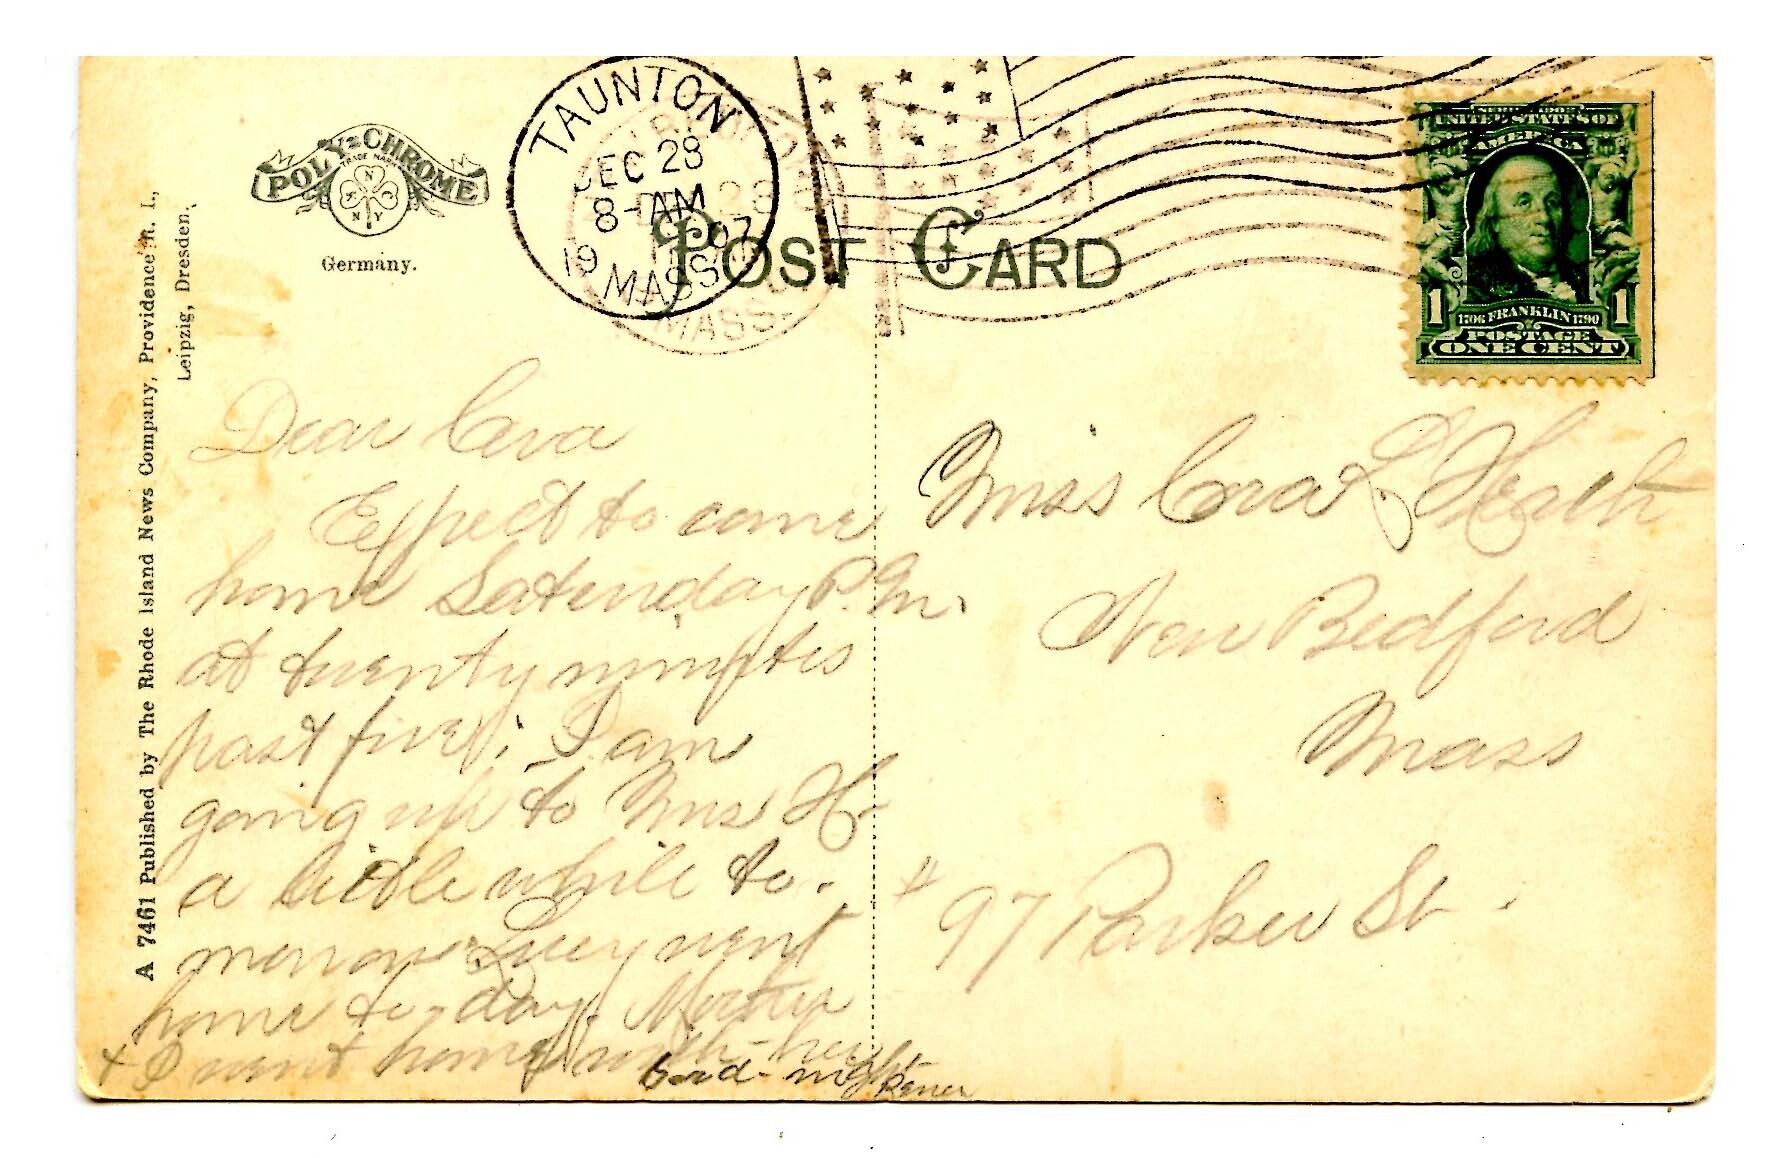 A 7461 Published by The Rhode Island News Company, Providence R. I.,
Leipzig, Dresden.
POLY=CHROME
TRADE MARK
N
N Y
Germany.
TAUNTON
DEC 28
8-AM
1907
MASS.
28
MASS.
POST CARD
SERIES 1902
UNITED STATES OF
AMERICA
1 1
1706 FRANKLIN 1790
POSTAGE
ONE CENT
Dear Cora
Expect to come
home Saturday P.M.
at twenty minutes
past five; I am
going up to Mrs H
a little while to-
morrow Lucy went
home to-day. Mother
+ I went home with her
Good-night
Miss Cora L Heath
New Bedford
Mass
# 97 Parker St.